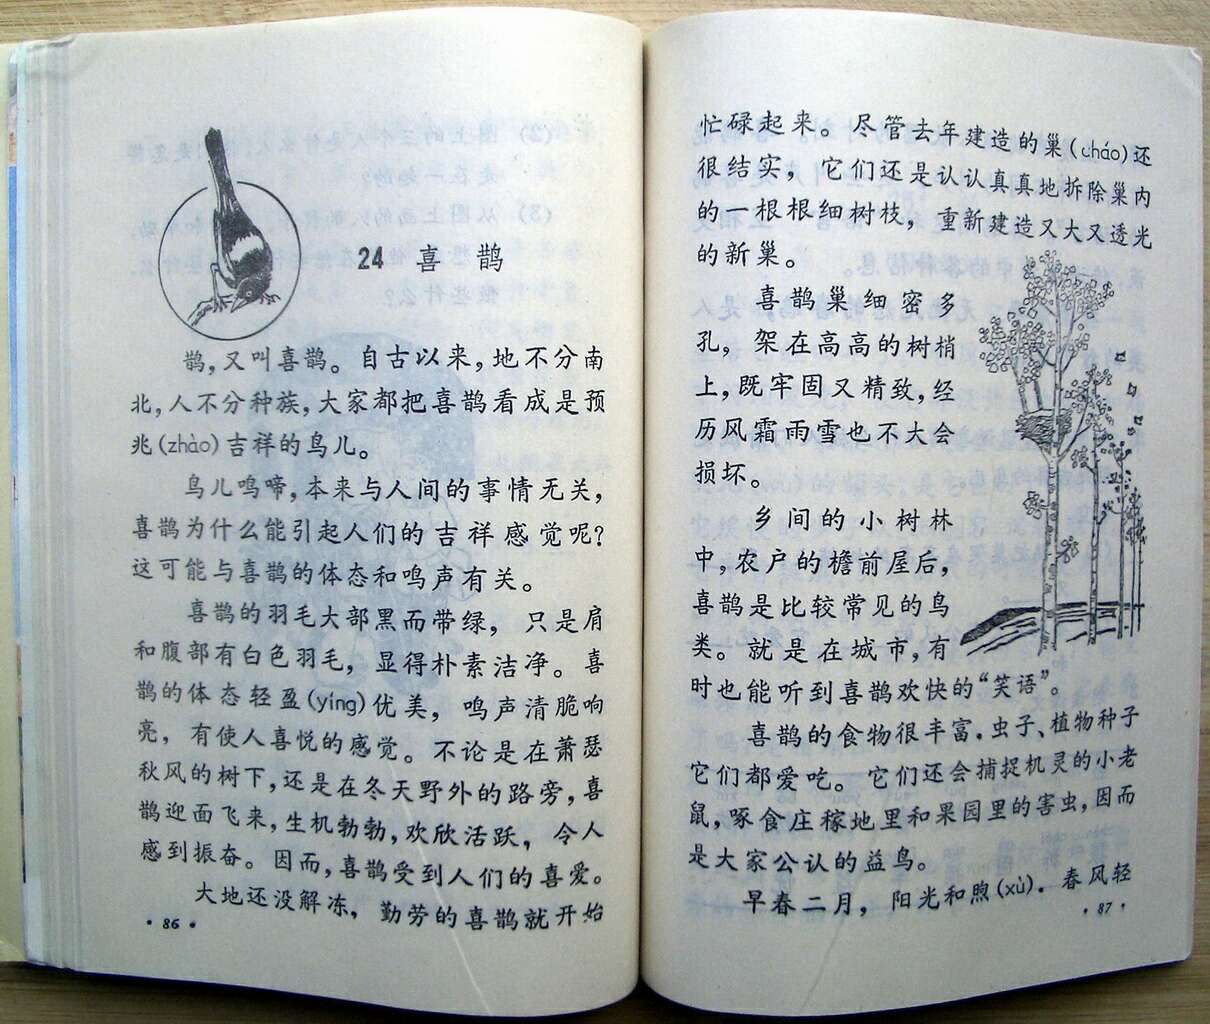 24 喜 鹊
鹊,又叫喜鹊。自古以来,地不分南
北,人不分种族,大家都把喜鹊看成是预
兆(zhào)吉祥的鸟儿。
鸟儿鸣啼,本来与人间的事情无关,
喜鹊为什么能引起人们的吉祥感觉呢?
这可能与喜鹊的体态和鸣声有关。
喜鹊的羽毛大部黑而带绿,只是肩
和腹部有白色羽毛,显得朴素洁净。喜
鹊的体态轻盈(yíng)优美,鸣声清脆响
亮,有使人喜悦的感觉。不论是在萧瑟
秋风的树下,还是在冬天野外的路旁,喜
鹊迎面飞来,生机勃勃,欢欣活跃,令人
感到振奋。因而,喜鹊受到人们的喜爱。
大地还没解冻,勤劳的喜鹊就开始
·86·
忙碌起来。尽管去年建造的巢(cháo)还
很结实,它们还是认认真真地拆除巢内
的一根根细树枝,重新建造又大又透光
的新巢。
喜鹊巢细密多
孔,架在高高的树梢
上,既牢固又精致,经
历风霜雨雪也不大会
损坏。
乡间的小树林
中,农户的檐前屋后,
喜鹊是比较常见的鸟
类。就是在城市,有
时也能听到喜鹊欢快的“笑语”。
喜鹊的食物很丰富.虫子、植物种子
它们都爱吃。它们还会捕捉机灵的小老
鼠,啄食庄稼地里和果园里的害虫,因而
是大家公认的益鸟。
早春二月,阳光和煦(xù).春风轻
·87·